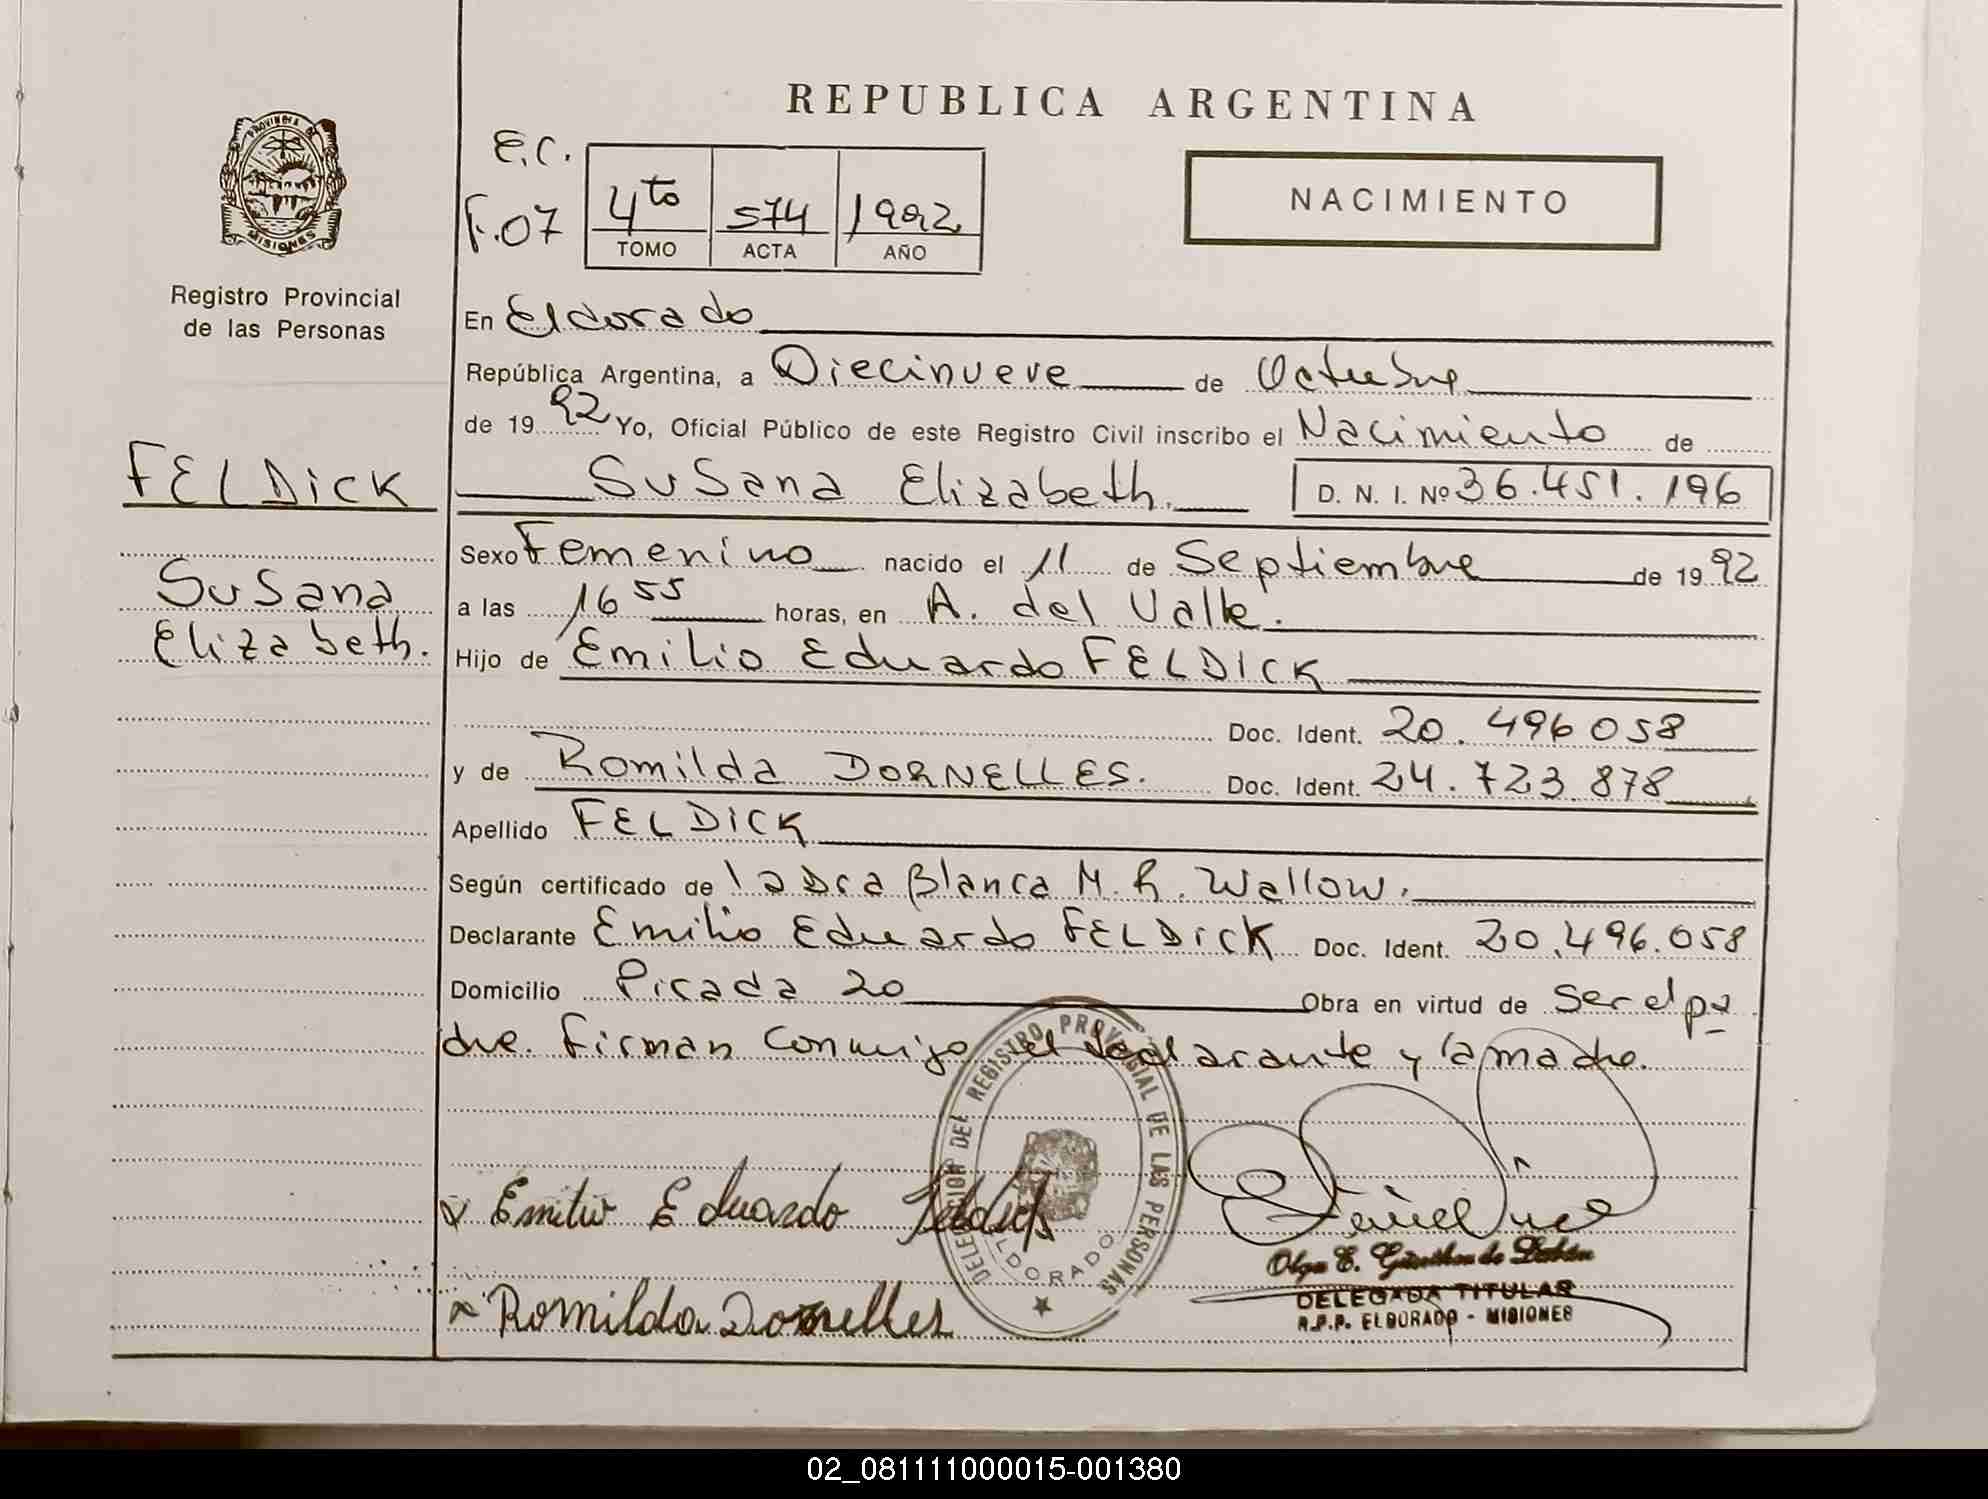 REPUBLICA ARGENTINA
PROVINCIA DE
MISIONES
Registro Provincial
de las Personas
E.C.
F.07
4to 574 1992
TOMO ACTA AÑO
NACIMIENTO
En Eldorado
República Argentina, a Diecinueve de Octubre
de 1992 Yo, Oficial Público de este Registro Civil inscribo el Nacimiento de
FELDICK
Susana Elizabeth. D. N. I. Nº 36.451.196
Sexo Femenino nacido el 11 de Septiembre de 1992
Susana
Elizabeth.
a las 16 55 horas, en A. del Valle.
Hijo de Emilio Eduardo FELDICK
Doc. Ident. 20.496058
y de Romilda DORNELLES. Doc. Ident. 24.723.878
Apellido FELDICK
Según certificado de la Dra Blanca M. R. Wallow.
Declarante Emilio Eduardo FELDICK Doc. Ident. 20.496.058
Domicilio Picada 20 Obra en virtud de Ser el pa
dre. Firman conmigo el declarante y la madre.
DELEGACION DEL REGISTRO PROVINCIAL DE LAS PERSONAS
ELDORADO
Emilio Eduardo Feldick
Romilda Dornelles
Olga E.
DELEGADA TITULAR
R.P.P. ELDORADO - MISIONES
02_081111000015-001380